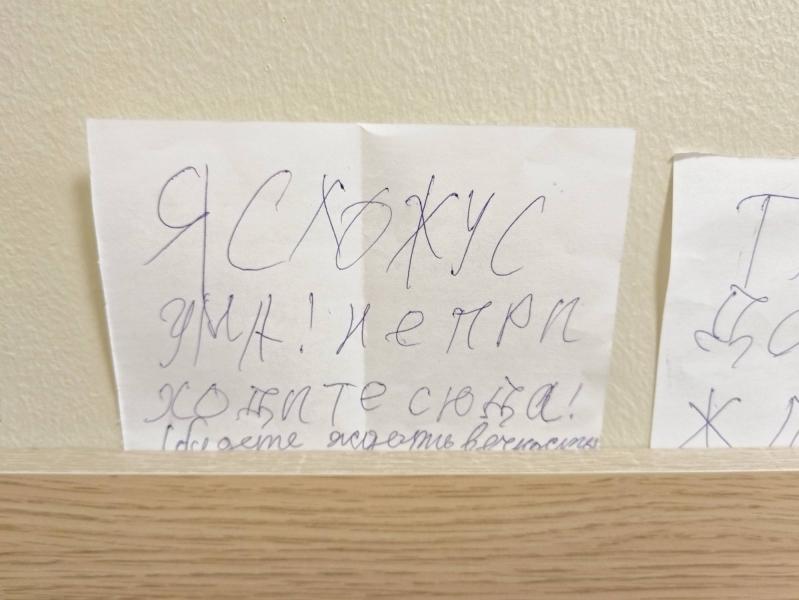 Я СХОЖУ С
УМА! не при
ходите сюда!
(будете ждать вечность